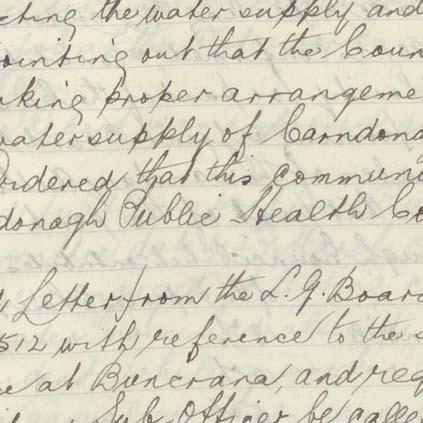 cting the water supply and
ointing out that the Coun
aking proper arrangeme
water supply of Carndona
Ordered that this communi
donagh Public Health Co
Letter from the L. G. Board
512 with reference to the
at Buncrana, and req
Sub Officer be calle